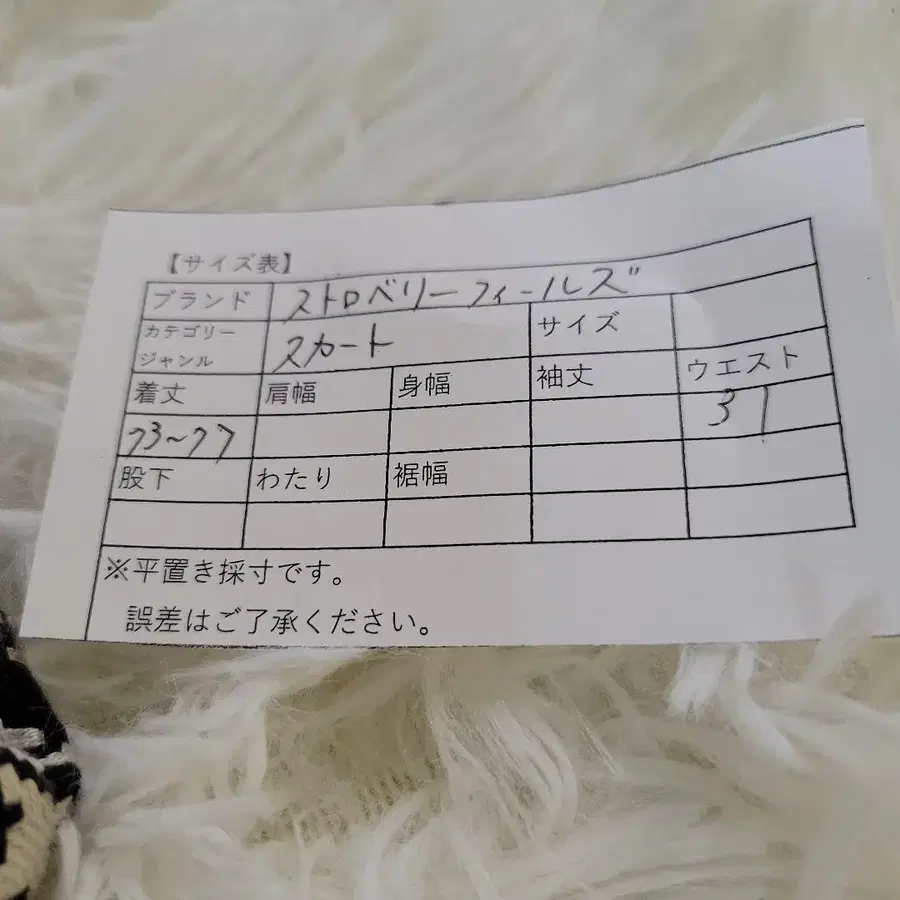 【サイズ表】
ブランド ストロベリーフィールズ
カテゴリー
ジャンル スカート サイズ
着丈 肩幅 身幅 袖丈 ウエスト
73~77 37
股下 わたり 裾幅
※平置き採寸です。
誤差はご了承ください。